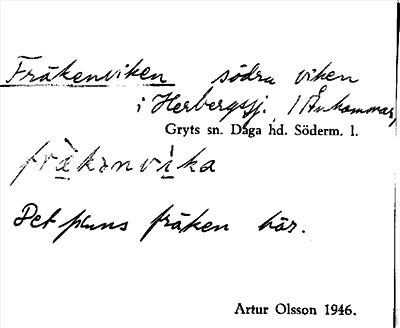 Fräkenviken södra viken
i Herbergssj. / Åvhammar,
Gryts sn. Daga hd. Söderm. l.
fräkənvika
Det finns fräken här.
Artur Olsson 1946.